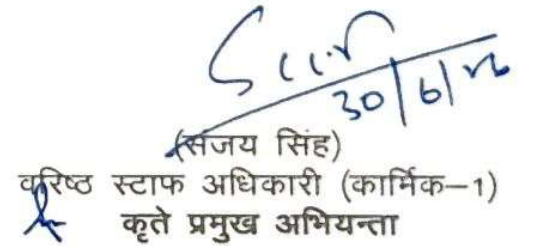 30/6/
(संजय सिंह)
वरिष्ठ स्टाफ अधिकारी (कार्मिक–1)
कृते प्रमुख अभियन्ता